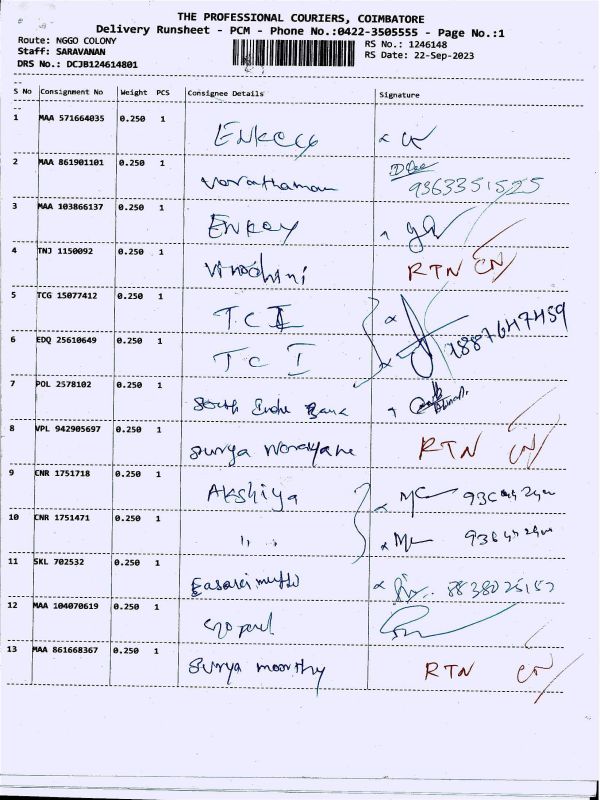 THE PROFESSIONAL COURIERS, COIMBATORE
Delivery Runsheet - PCM - Phone No.:0422-3505555 - Page No.:1
Route: NGGO COLONY
RS No.: 1246148
Staff: SARAVANAN
RS Date: 22-Sep-2023
DRS No.: DCJB124614801
S No Consignment No Weight PCS Consignee Details Signature
1 MAA 571664035 0.250 1
2 MAA 861901101 0.250 1 9363351525
3 MAA 103866137 0.250 1 Enkay
4 TNJ 1150092 0.250 1 Vinodhini RTN
5 TCG 15077412 0.250 1 TCI
6 EDQ 25610649 0.250 1 TCI
7 POL 2578102 0.250 1 South Bank
8 VPL 942905697 0.250 1 Surya RTN
9 CNR 1751718 0.250 1 Akshiya
10 CNR 1751471 0.250 1 " "
11 SKL 702532 0.250 1
12 MAA 104070619 0.250 1
13 MAA 861668367 0.250 1 Surya moorthy RTN